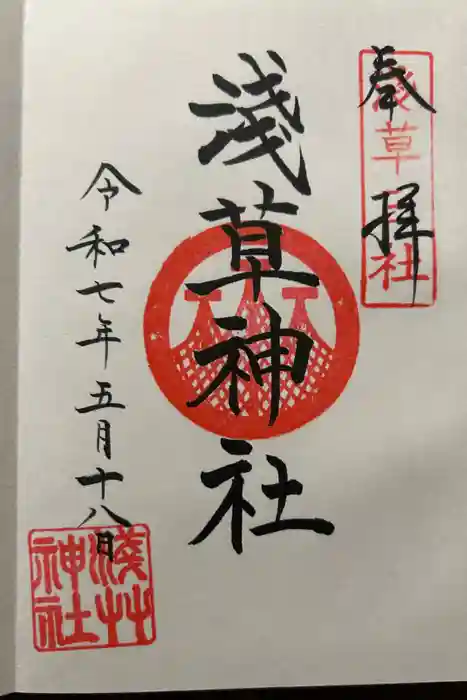 奉拝
浅草名社
淺草神社
令和七年五月十八日
淺草神社